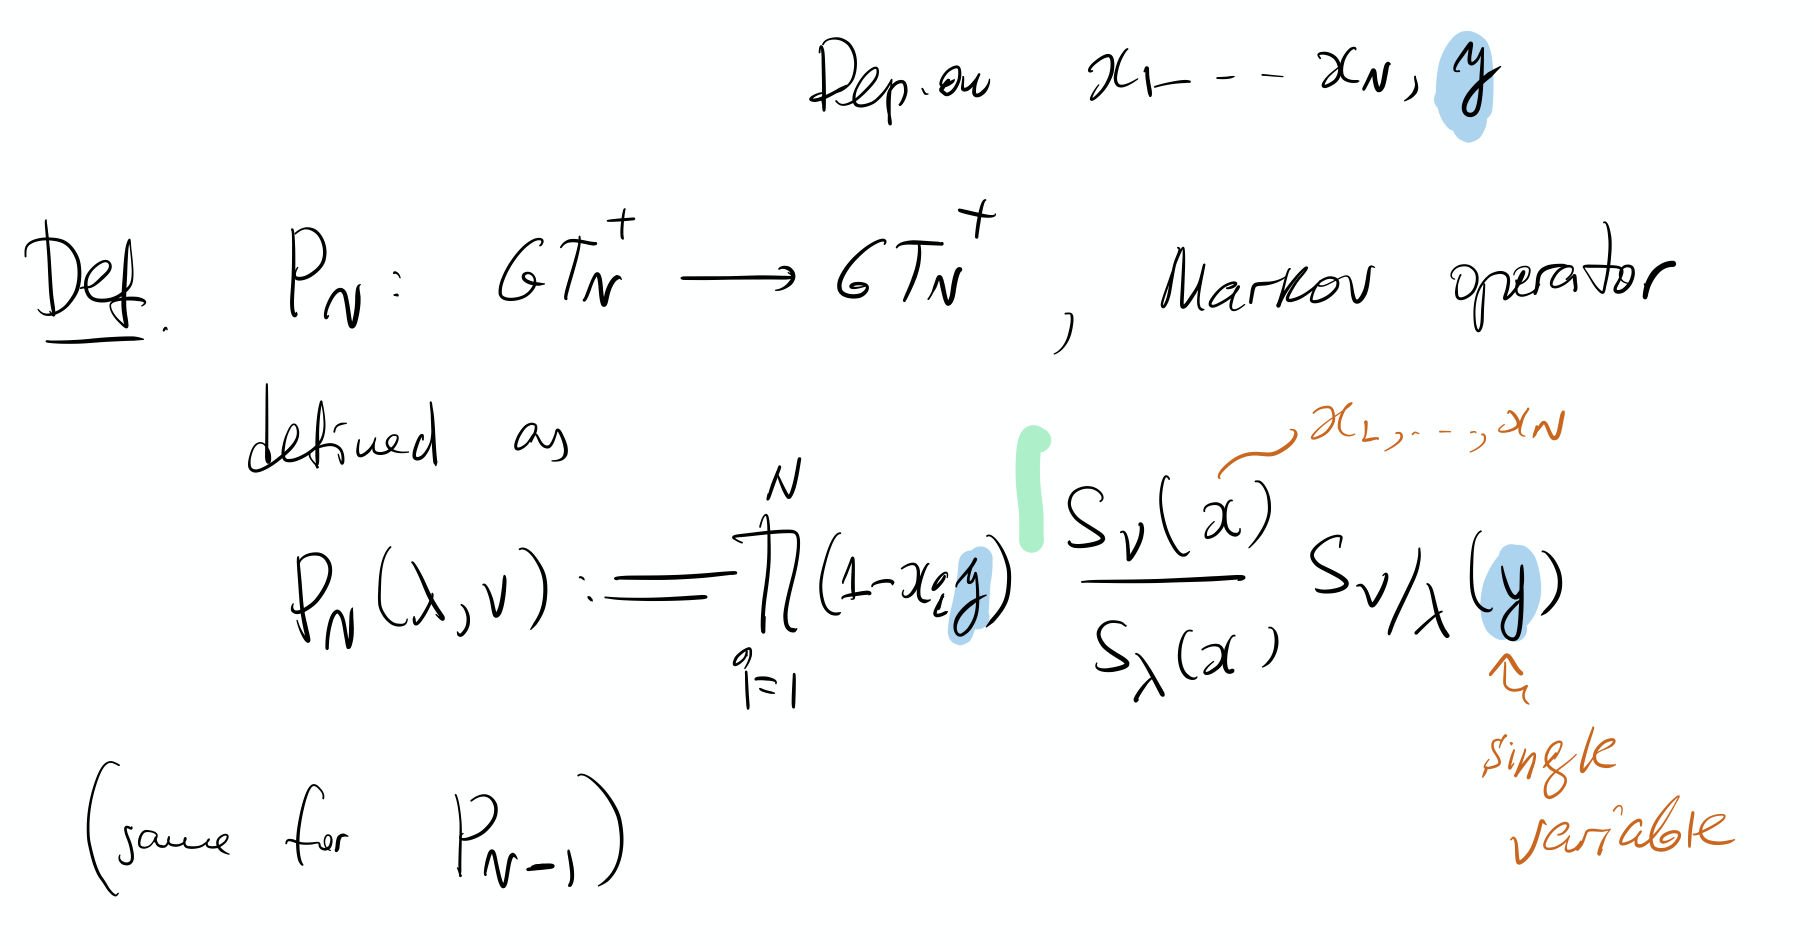 Dep. on x₁ - - - x_N, y
Def. P_N : GT_N⁺ ⟶ GT_N⁺ , Markov operator
defined as
x₁, - - -, x_N
P_N(λ, ν) := ∏_{i=1}^{N} (1 - x_i y) \frac{S_ν(x)}{S_λ(x)} S_{ν/λ}(y)
single
variable
(same for P_{N-1})